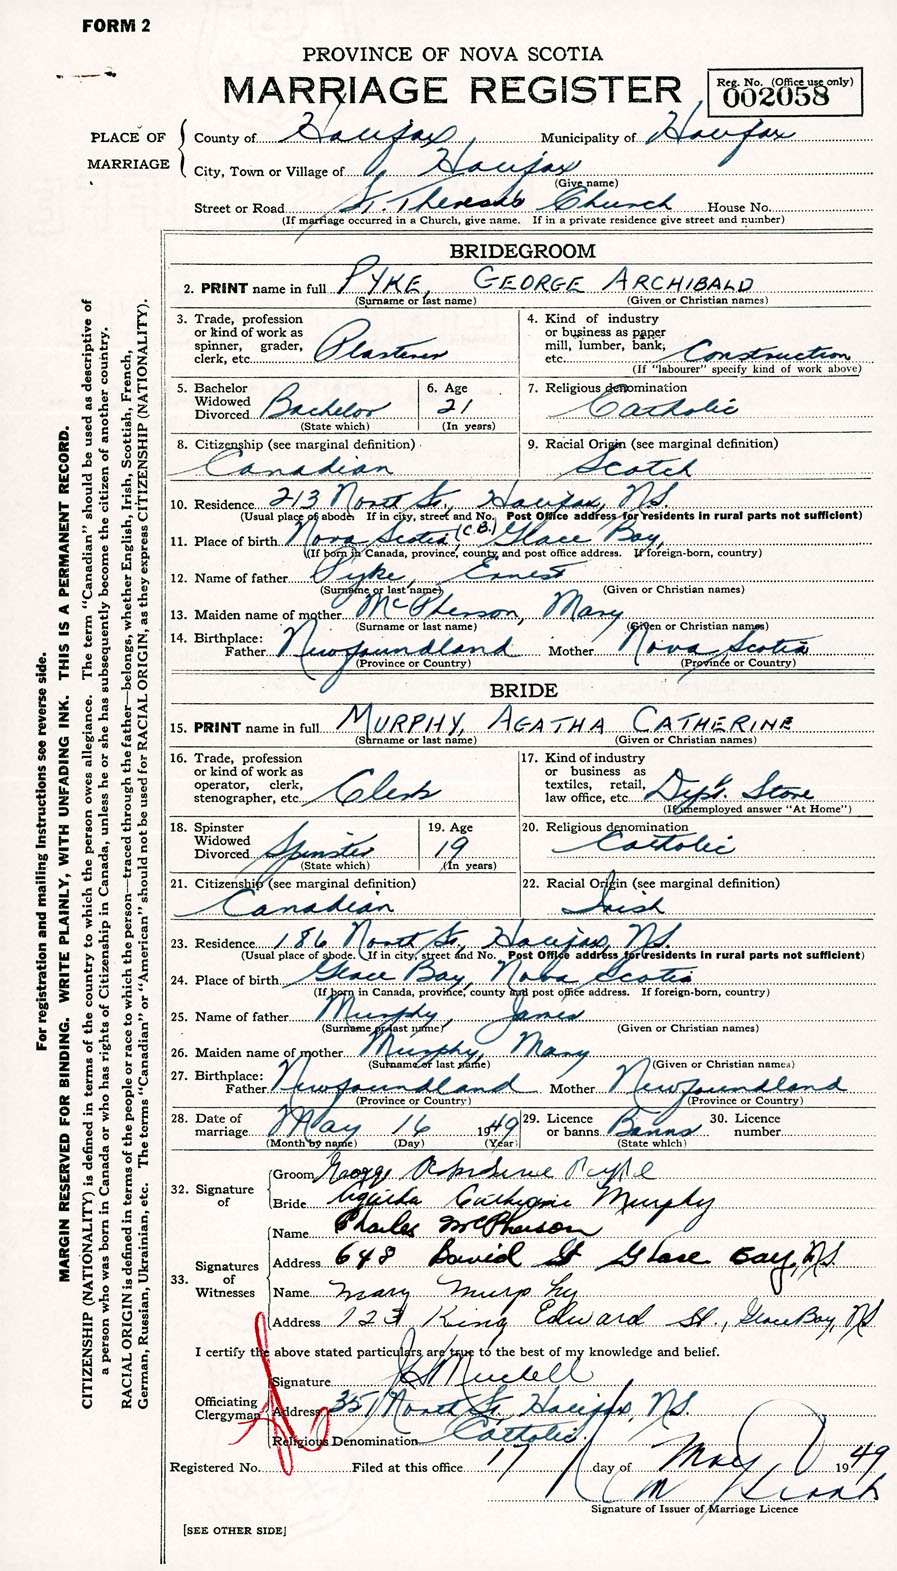 FORM 2
PROVINCE OF NOVA SCOTIA
MARRIAGE REGISTER
Reg. No. (Office use only)
002058
PLACE OF MARRIAGE
County of Halifax Municipality of Halifax
City, Town or Village of Halifax
(Give name)
Street or Road St. Theresa's Church House No.
(If marriage occurred in a Church, give name. If in a private residence give street and number)
BRIDEGROOM
2. PRINT name in full PYKE, GEORGE ARCHIBALD
(Surname or last name) (Given or Christian names)
3. Trade, profession or kind of work as spinner, grader, clerk, etc. Plasterer
4. Kind of industry or business as paper mill, lumber, bank, etc. Construction
(If "labourer" specify kind of work above)
5. Bachelor Widowed Divorced Bachelor
(State which)
6. Age 21
(In years)
7. Religious denomination Catholic
8. Citizenship (see marginal definition) Canadian
9. Racial Origin (see marginal definition) Scotch
10. Residence 213 North St., Halifax, N.S.
(Usual place of abode. If in city, street and No. Post Office address for residents in rural parts not sufficient)
11. Place of birth Nova Scotia (C.B.) Glace Bay,
(If born in Canada, province, county and post office address. If foreign-born, country)
12. Name of father Pyke, Ernest
(Surname or last name) (Given or Christian names)
13. Maiden name of mother McPherson, Mary
(Surname or last name) (Given or Christian names)
14. Birthplace: Father Newfoundland Mother Nova Scotia
(Province or Country) (Province or Country)
BRIDE
15. PRINT name in full MURPHY, AGATHA CATHERINE
(Surname or last name) (Given or Christian names)
16. Trade, profession or kind of work as operator, clerk, stenographer, etc. Clerk
17. Kind of industry or business as textiles, retail, law office, etc. Dept. Store
(If unemployed answer "At Home")
18. Spinster Widowed Divorced Spinster
(State which)
19. Age 19
(In years)
20. Religious denomination Catholic
21. Citizenship (see marginal definition) Canadian
22. Racial Origin (see marginal definition) Irish
23. Residence 186 North St., Halifax, N.S.
(Usual place of abode. If in city, street and No. Post Office address for residents in rural parts not sufficient)
24. Place of birth Glace Bay, Nova Scotia
(If born in Canada, province, county and post office address. If foreign-born, country)
25. Name of father Murphy, James
(Surname or last name) (Given or Christian names)
26. Maiden name of mother Murphy, Mary
(Surname or last name) (Given or Christian names)
27. Birthplace: Father Newfoundland Mother Newfoundland
(Province or Country) (Province or Country)
28. Date of marriage May 16 1949
(Month by name) (Day) (Year)
29. Licence or banns Banns
(State which)
30. Licence number
32. Signature of
Groom George Pyke
Bride Agatha Catherine Murphy
33. Signatures of Witnesses
Name Charles McPherson
Address 648 David St Glace Bay, N.S.
Name Mary Murphy
Address 123 King Edward St., Glace Bay, N.S.
I certify the above stated particulars are true to the best of my knowledge and belief.
Officiating Clergyman
Signature
Address 351 North St. Halifax, N.S.
Religious Denomination Catholic.
Registered No. Filed at this office 17 day of May 1949
M
Signature of Issuer of Marriage Licence
[SEE OTHER SIDE]
For registration and mailing instructions see reverse side.
MARGIN RESERVED FOR BINDING. WRITE PLAINLY, WITH UNFADING INK. THIS IS A PERMANENT RECORD.
CITIZENSHIP (NATIONALITY) is defined in terms of the country to which the person owes allegiance. The term "Canadian" should be used as descriptive of
a person who was born in Canada or who has rights of Citizenship in Canada, unless he or she has subsequently become the citizen of another country.
RACIAL ORIGIN is defined in terms of the people or race to which the person—traced through the father—belongs, whether English, Irish, Scottish, French,
German, Russian, Ukrainian, etc. The terms "Canadian" or "American" should not be used for RACIAL ORIGIN, as they express CITIZENSHIP (NATIONALITY).